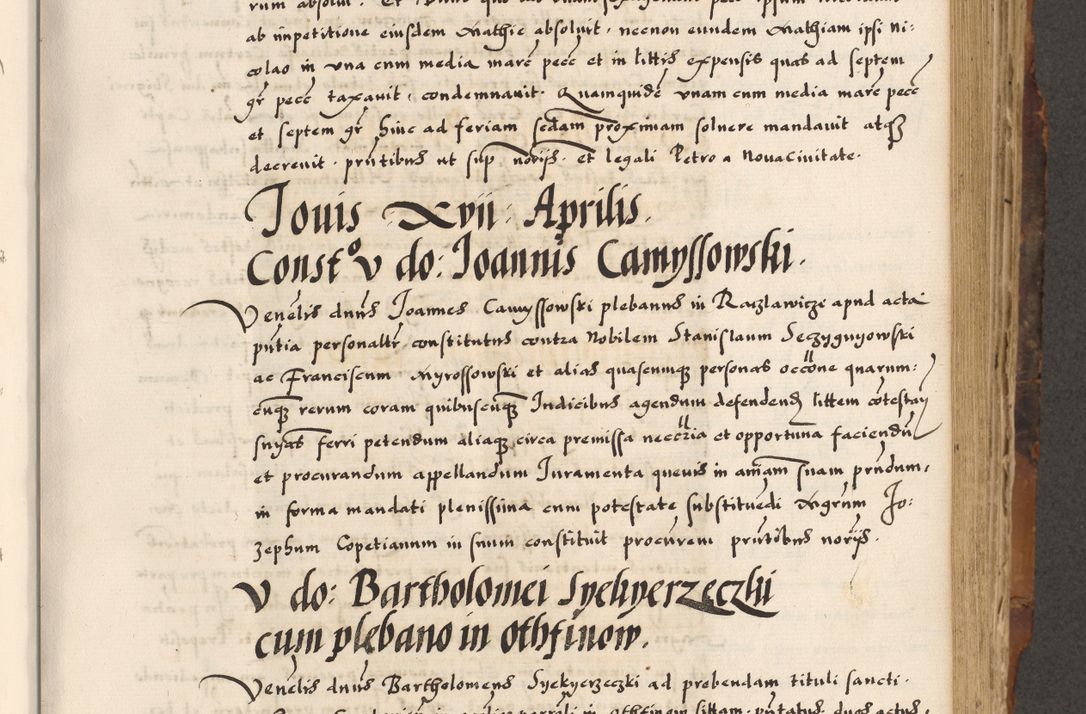 ab impetitione eiusdem Mathie absoluit · necnon eundem Mathiam ipsi Ni:
colao in vna cum media marc pecc et in littis expensis quas ad septem
gr pecc taxauit · condemnauit · Quamquidē vnam cum media marc pecc
et septem gr hinc ad feriam scdam proximam soluere mandauit atqz
decreuit · prntibus ut sup norijs · et legali Petro a Nouaciuitate ·
Jouis · Xvii · Aprilis ·
Constº v do: Joannis Camyssowski ·
Venelis dnus Joannes Camyssowski plebanus in Raczlawiczi apud acta
pntia personaltr constitutus contra Nobilem Stanislaum Seczyguyowski
ac Franciscum Myrossowski et alias quascumqz personas occone quarum:
cuqz rerum coram quibuscuqz Judicibus agendum defendend littem cotestay
suyas ferri petendum aliaqz circa premissa neccria et opportuna faciendu
et procurandum appellandum Juramenta queuis in aniam suam prndum,
in forma mandati plenissima cum potestate substituedi Mgrum Jo:
zephum Copetianum in suum constituit procurem prntibus norijs ·
v do: Bartholomei Syekyerzeczki
cum plebano in Othfinow ·
Venelis dnus Bartholomeus Syekyerzeczki ad prebendam tituli sancti ·